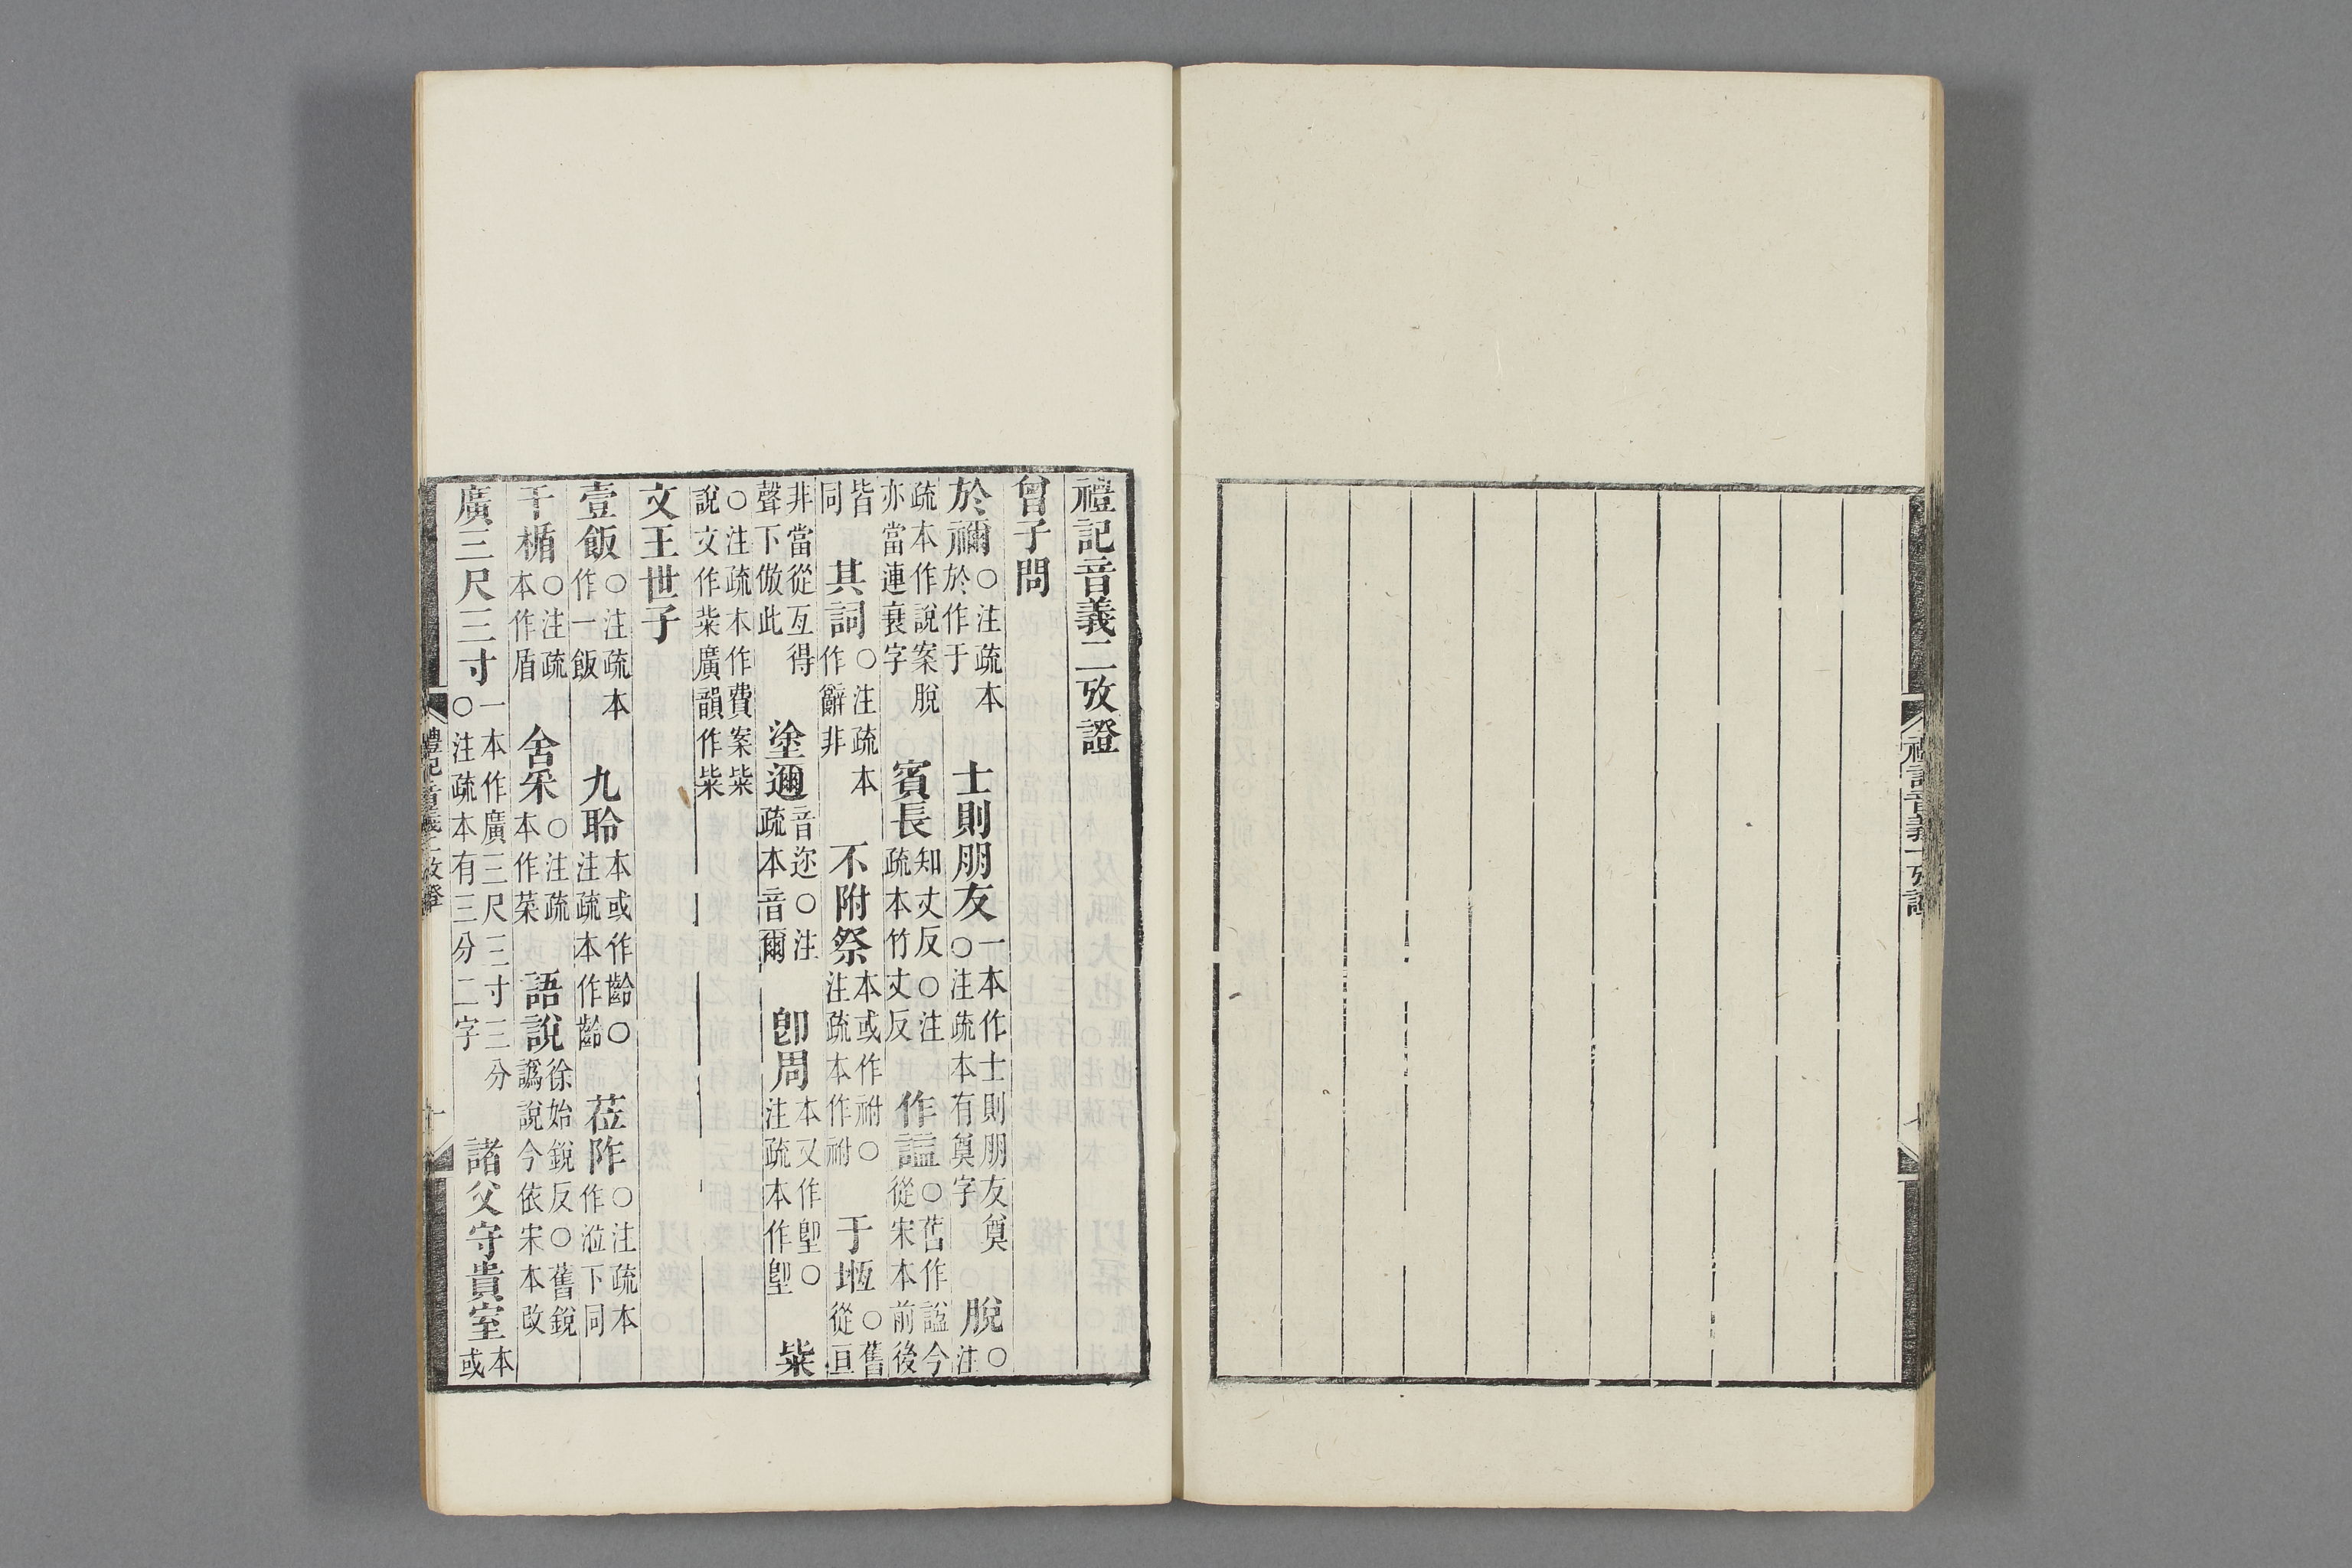 禮記音義一攷證
禮記音義二攷證
曾子問
於禰○注疏本於作于 士則朋友一本作士則朋友奠○注疏本有奠字 脫○注
疏本作說案脫亦當連衰字 賓長知丈反○注疏本竹丈反 作諡○舊作謚今從宋本前後
皆同 其詞○注疏本作辭非 不附祭本或作祔○注疏本作祔 于堩○舊從亘
非當從亙得聲下倣此 塗邇音迩○注疏本音爾 卽周本又作堲○注疏本作堲 粊
○注疏本作費案粊說文作粊廣韻作粊
文王世子
壹飯○注疏本作一飯 九聆本或作齡○注疏本作齡 莅阼○注疏本作涖下同
干楯○注疏本作盾 舍采○注疏本作菜 語說徐始銳反○舊銳譌說今依宋本改
廣三尺三寸一本作廣三尺三寸三分○注疏本有三分二字 諸父守貴室本或
禮記音義二攷證